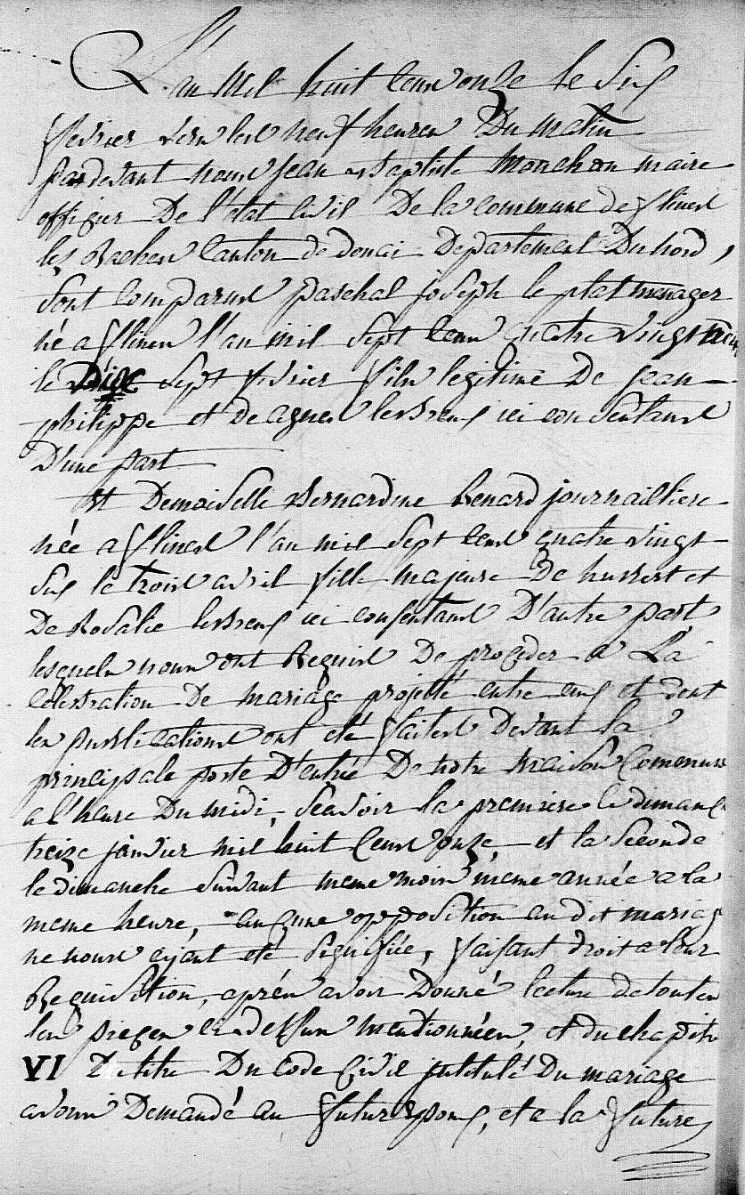 L'an Mil huit Cent onze le Six
fevrier vers les neuf heures Du Matin
pardevant nous jean Baptiste Monchon maire
officier De l'état Civil De la commune de flines
les Raches Canton de Douai Departement Du nord,
Sont Comparus paschal joseph le plat menager
né a flines l'an mil Sept Cens quatre vingt
le Dix Sept fevrier fils legitime De jean
philippe et de agnes ici consentans
D'une part
Et Demoiselle Bernardine benard journailliere
née a flines l'an mil Sept Cens quatre vingt
Six le trois avril fille majeure De et
De Rosalie ici consentans D'autre part
lesquels nous ont Requis De proceder a La
Célébration De mariage projetté entre eux et dont
les publications ont été faites Devant la
principale porte D'entrée De notre Maison Commune
a l'heure Du midi, Scavoir la premiere le dimanche
treize janvier mil huit Cens onze et la Seconde
le dimanche Suivant meme mois meme année a la
meme heure, aucune opposition au dit mariage
ne nous ayant été Signifiée, faisant droit a leur
Requisition, après avoir Donné lecture de toutes
les pieces ci-dessus mentionnées, et du chapitre
VI Du titre Du Code Civil intitulé Du mariage
avons Demandé au futur Epoux, et a la future